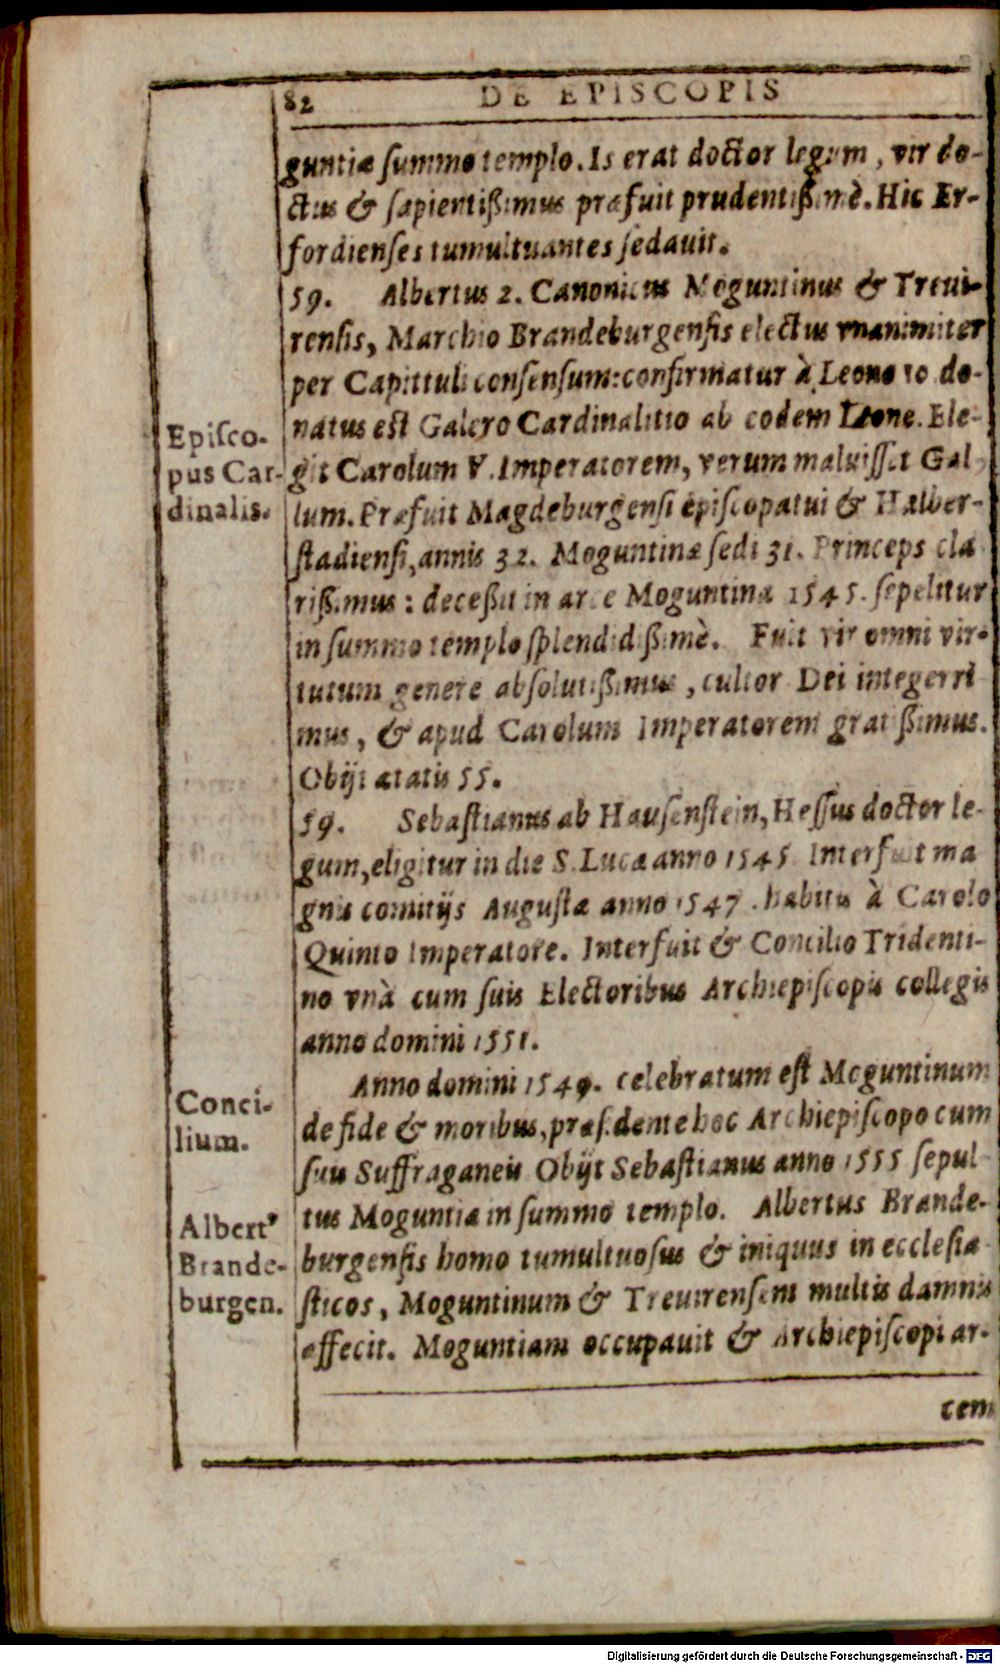 82 DE EPISCOPIS
guntiæ ſummo templo. Is erat doctor legum, vir do-
ctus & ſapientißimus præfuit prudentißimè. Hic Er-
fordienſes tumultuantes ſedauit.
59. Albertus 2. Canonicus Moguntinus & Treui-
renſis, Marchio Brandeburgenſis electus vnanimiter
per Capittuli conſenſum: confirmatur à Leone 10 do-
natus eſt Galero Cardinalitio ab eodem Leone. Ele-
git Carolum V. Imperatorem, verum maluiſſet Gal
lum. Præfuit Magdeburgenſi epiſcopatui & Halber-
ſtadienſi, annis 32. Moguntinæ ſedi 31. Princeps cla
rißimus: deceßit in arce Moguntina 1545. ſepelitur
in ſummo templo ſplendidißimè. Fuit vir omni vir-
tutum genere abſolutißimus, cultor Dei integerri
mus, & apud Carolum Imperatorem gratißimus.
Obijt ætatis 55.
Epiſco-
pus Car-
dinalis.
59. Sebaſtianus ab Hauſenſtein, Heſſus doctor le-
gum, eligitur in die S. Lucæ anno 1545 Interfuit ma
gnis comitijs Auguſtæ anno 1547. habitis à Carolo
Quinto Imperatore. Interfuit & Concilio Tridenti-
no vnà cum ſuis Electoribus Archiepiſcopis collegis
anno domini 1551.
Anno domini 1549. celebratum eſt Moguntinum
de fide & moribus, præſidente hoc Archiepiſcopo cum
ſuis Suffraganeis Obijt Sebaſtianus anno 1555 ſepul
tus Moguntiæ in ſummo templo. Albertus Brande-
burgenſis homo tumultuoſus & iniquus in eccleſia
ſticos, Moguntinum & Treuirenſem multis damnis
affecit. Moguntiam occupauit & Archiepiſcopi ar-
Conci-
lium.
Albert'
Brande-
burgen.
cem
Digitalisierung gefördert durch die Deutsche Forschungsgemeinschaft - DFG